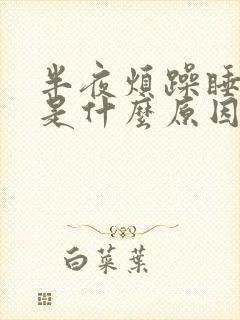 半夜煩躁睡
是什麼原因
白菜葉